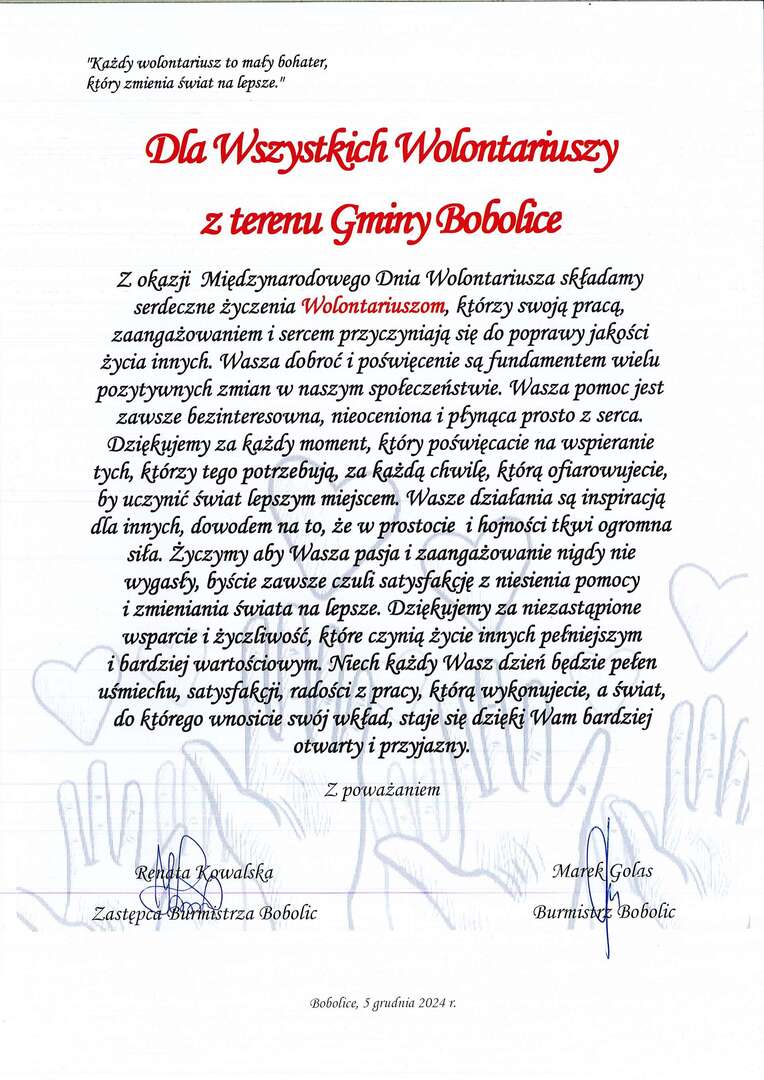 "Każdy wolontariusz to mały bohater,
który zmienia świat na lepsze."
Dla Wszystkich Wolontariuszy
z terenu Gminy Bobolice
Z okazji Międzynarodowego Dnia Wolontariusza składamy
serdeczne życzenia Wolontariuszom, którzy swoją pracą,
zaangażowaniem i sercem przyczyniają się do poprawy jakości
życia innych. Wasza dobroć i poświęcenie są fundamentem wielu
pozytywnych zmian w naszym społeczeństwie. Wasza pomoc jest
zawsze bezinteresowna, nieoceniona i płynąca prosto z serca.
Dziękujemy za każdy moment, który poświęcacie na wspieranie
tych, którzy tego potrzebują, za każdą chwilę, którą ofiarowujecie,
by uczynić świat lepszym miejscem. Wasze działania są inspiracją
dla innych, dowodem na to, że w prostocie i hojności tkwi ogromna
siła. Życzymy aby Wasza pasja i zaangażowanie nigdy nie
wygasły, byście zawsze czuli satysfakcję z niesienia pomocy
i zmieniania świata na lepsze. Dziękujemy za niezastąpione
wsparcie i życzliwość, które czynią życie innych pełniejszym
i bardziej wartościowym. Niech każdy Wasz dzień będzie pełen
uśmiechu, satysfakcji, radości z pracy, którą wykonujecie, a świat,
do którego wnosicie swój wkład, staje się dzięki Wam bardziej
otwarty i przyjazny.
Z poważaniem
Renata Kowalska
Marek Golas
Zastępca Burmistrza Bobolic
Burmistrz Bobolic
Bobolice, 5 grudnia 2024 r.